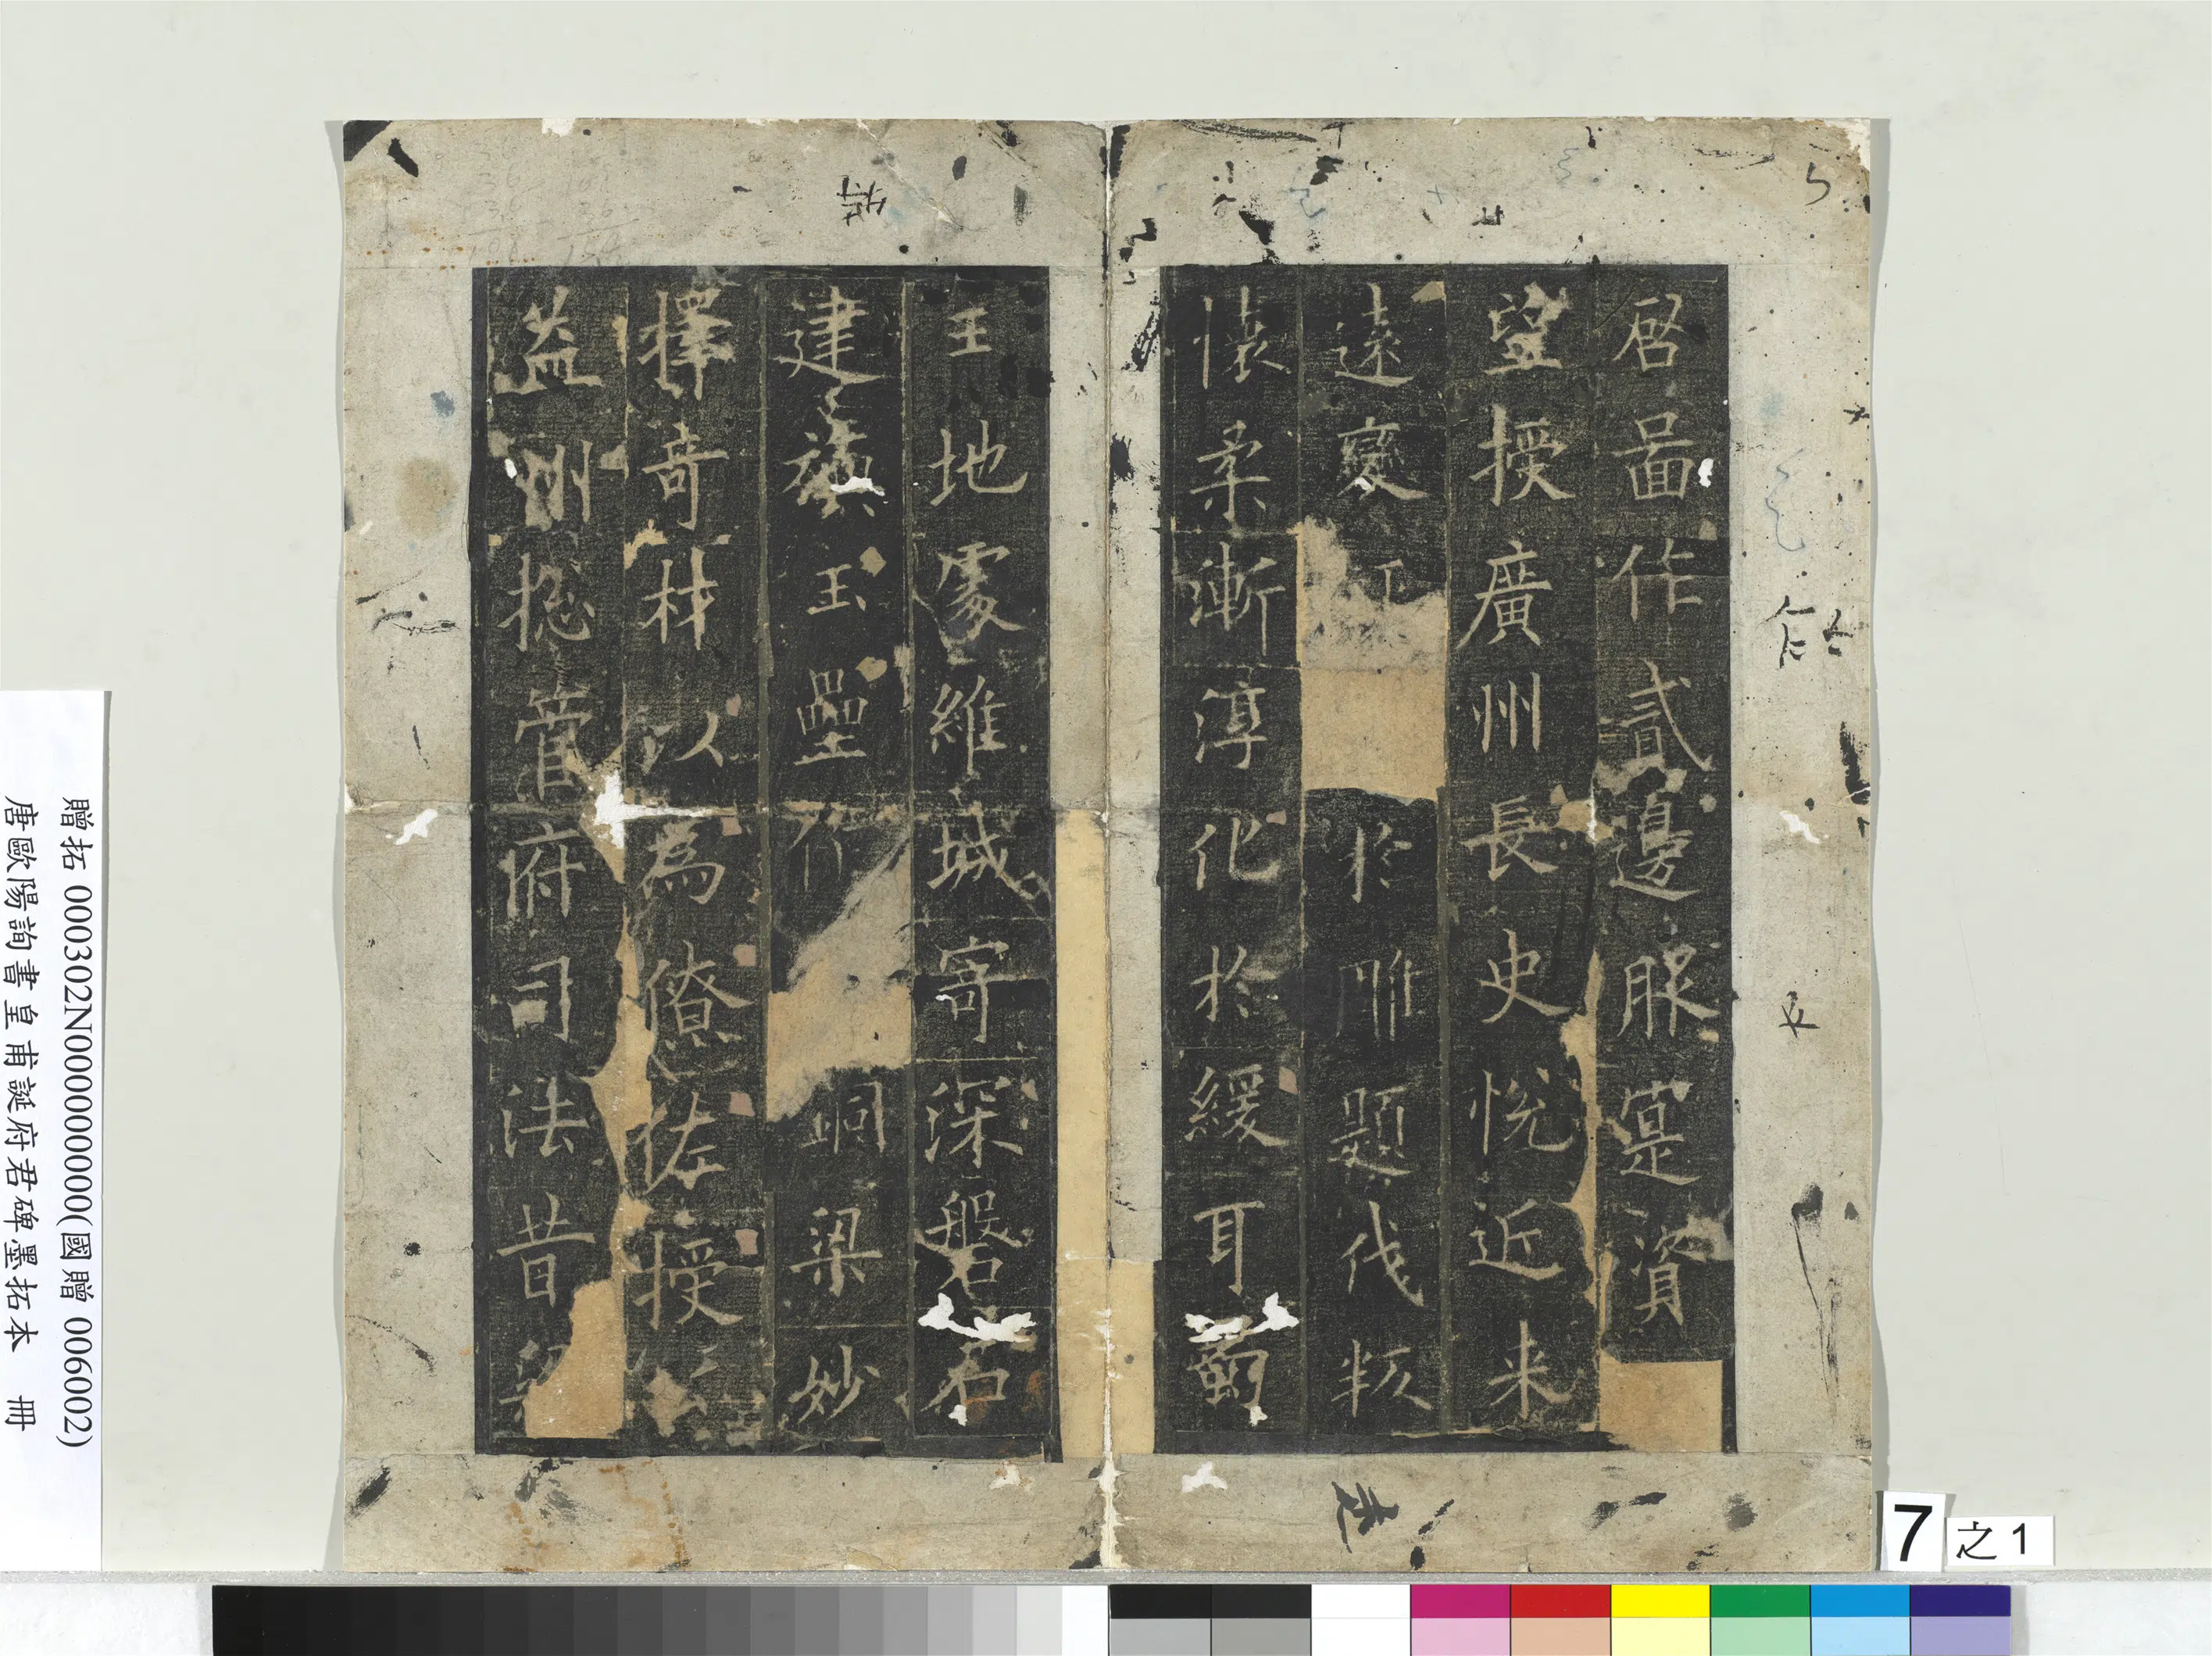 啓啚作貳邊服寔資
望授廣州長史悅近来
遠變於雕題伐叛
懷柔漸淳化於緩耳蜀
王地處維城寄深磐石
建旟玉壘銅梁妙
擇奇材以為僚佐授
益州揔管府司法昔
贈拓 000302N000000000(國贈 006002)
唐歐陽詢書皇甫誕府君碑墨拓本 冊
7之1